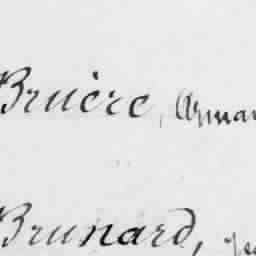 Bruère, Arman
Brunard,